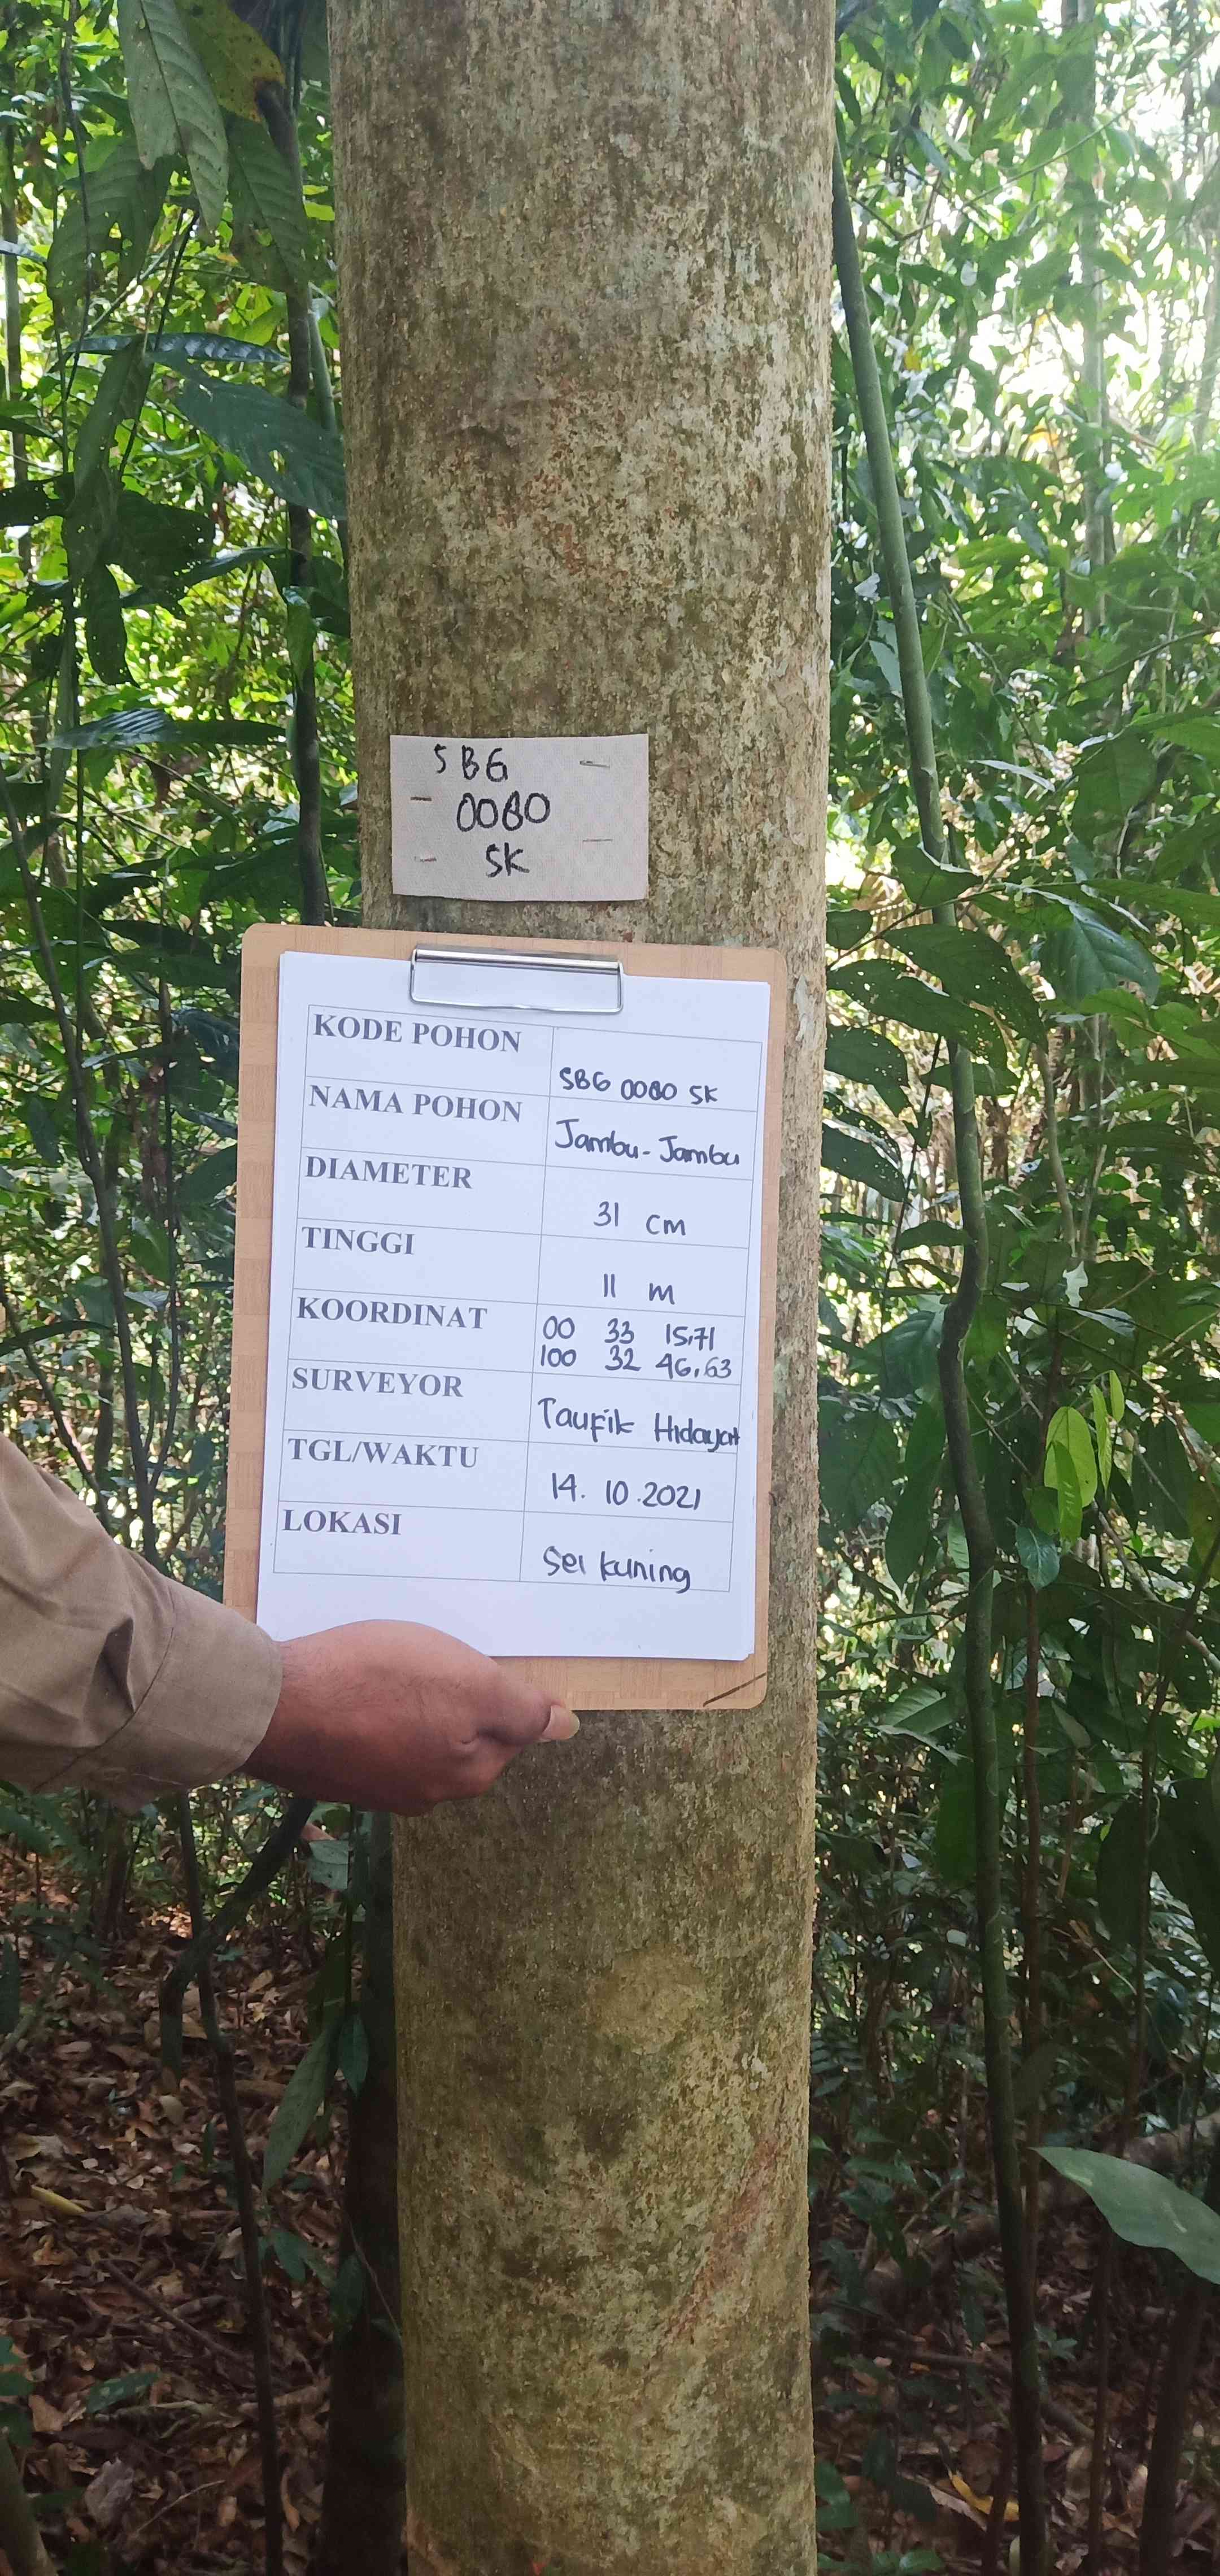 SBG
0080
SK
KODE POHON
SBG 0080 SK
NAMA POHON
Jambu-Jambu
DIAMETER
31 cm
TINGGI
11 m
KOORDINAT
00 33 15,71
100 32 46,63
SURVEYOR
Taufik Hidayat
TGL/WAKTU
14.10.2021
LOKASI
Sei kuning